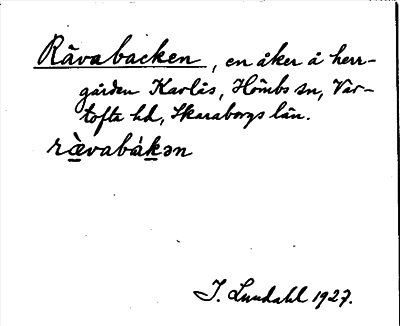 Rävabacken, en åker å herr-
gården Karlås, Hömbs sn, Var-
tofta hd, Skaraborgs län.
rä̀vabákən
I. Lundahl 1927.